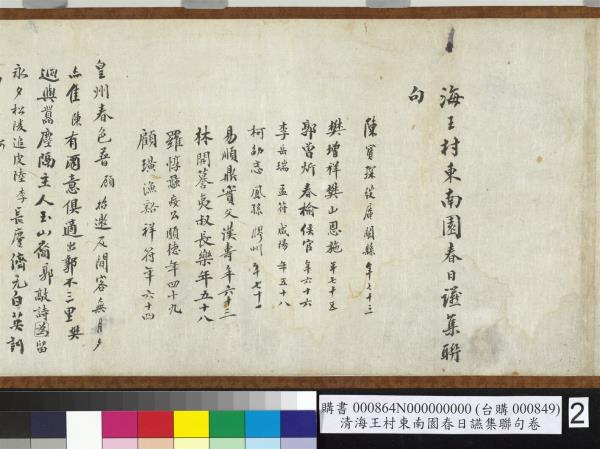 海王村東南園春日讌集聯
句
陳寶琛弢庵閩縣年七十三
樊增祥樊山恩施年七十五
郭曾炘春榆侯官年六十六
李岳瑞孟符咸陽年五十八
柯劭忞鳳孫膠州年七十一
易順鼎實父漢壽年六十三
林開謩貽叔長樂年五十八
羅惇曧癭公順德年四十九
顧璜漁谿祥符年六十四
皇州春色普顧招邀及閒客無月夕
亦佳陳有酒意俱適出郭不三里樊
迥與囂塵隔主人玉山裔郭敲詩為留
永夕松陵追皮陸李長慶儕元白英詞
購書 000864N000000000 (台購 000849)
清海王村東南園春日讌集聯句卷
2